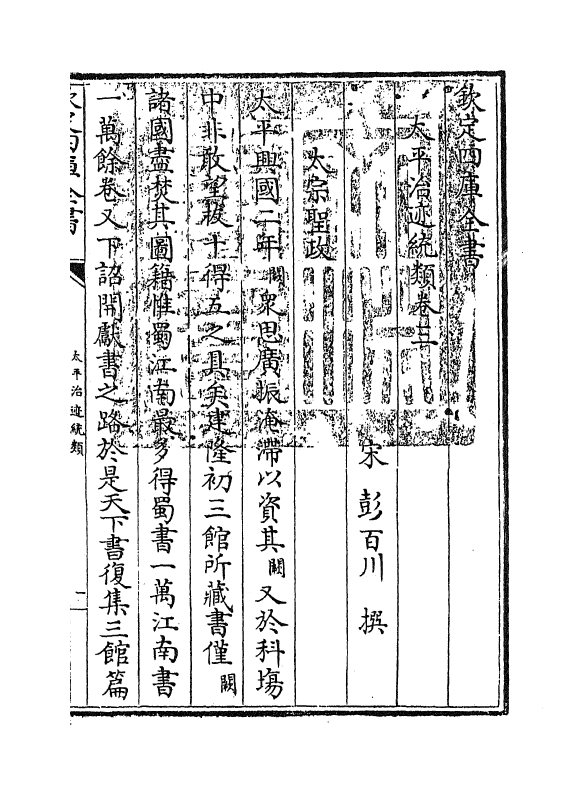 欽定四庫全書
太平治迹統類卷三
宋 彭百川 撰
太宗聖政
太平興國二年闕衆思廣振淹滯以資其闕又於科場
中非敢望拔十得五之具矣建隆初三館所藏書僅闕
諸國盡焚其圖籍惟蜀江南最多得蜀書一萬江南書
一萬餘卷又下詔開獻書之路於是天下書復集三館篇
欽定四庫全書
太平治迹統類
一